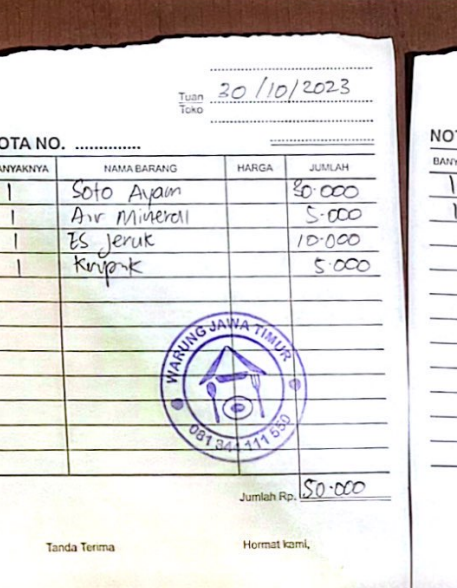 Tuan
Toko 30/10/2023
OTA NO. ..............
ANYAKNYA NAMA BARANG HARGA JUMLAH
1 Soto Ayam 30.000
1 Air Minerall 5.000
1 ES Jeruk 10.000
1 Krupuk 5.000
WARUNG JAWA TIMUR
081 341 111 550
Jumlah Rp. 50.000
Tanda Terima Hormat kami,
NOT
BANY
1
1